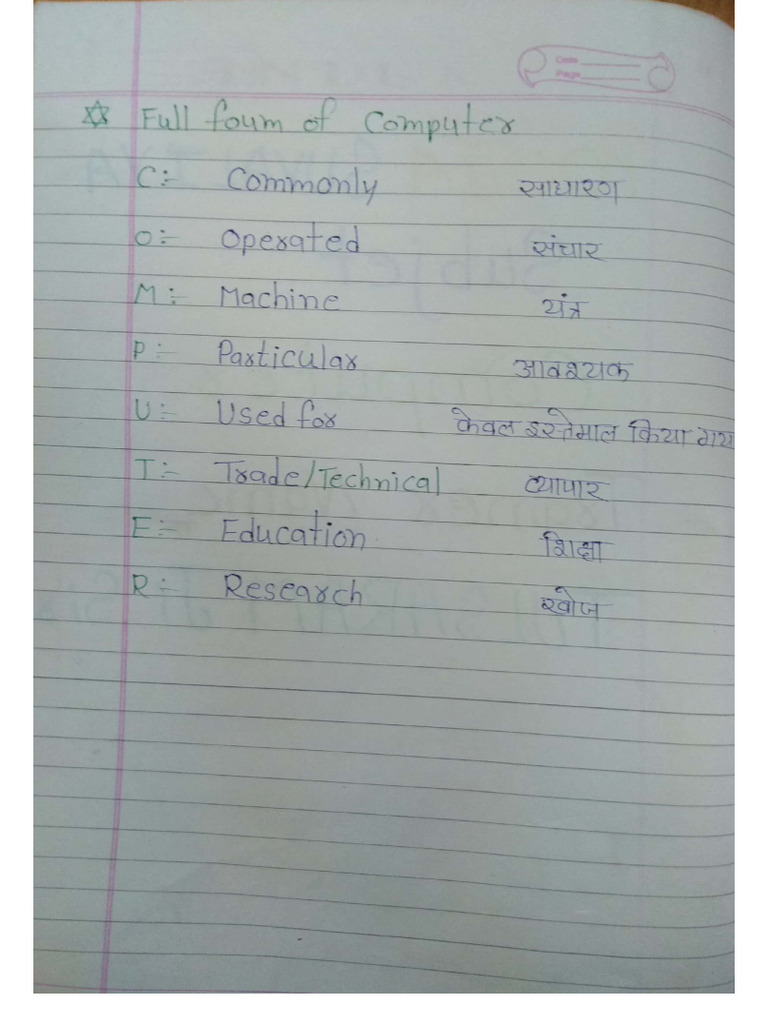 Date
Page
☆ Full foum of Computer
C:- Commonly साधारण
O:- Operated संचार
M:- Machine यंत्र
P:- Particular आवश्यक
U:- Used for केवल इस्तेमाल किया गय
T:- Trade/Technical व्यापार
E:- Education शिक्षा
R:- Research खोज